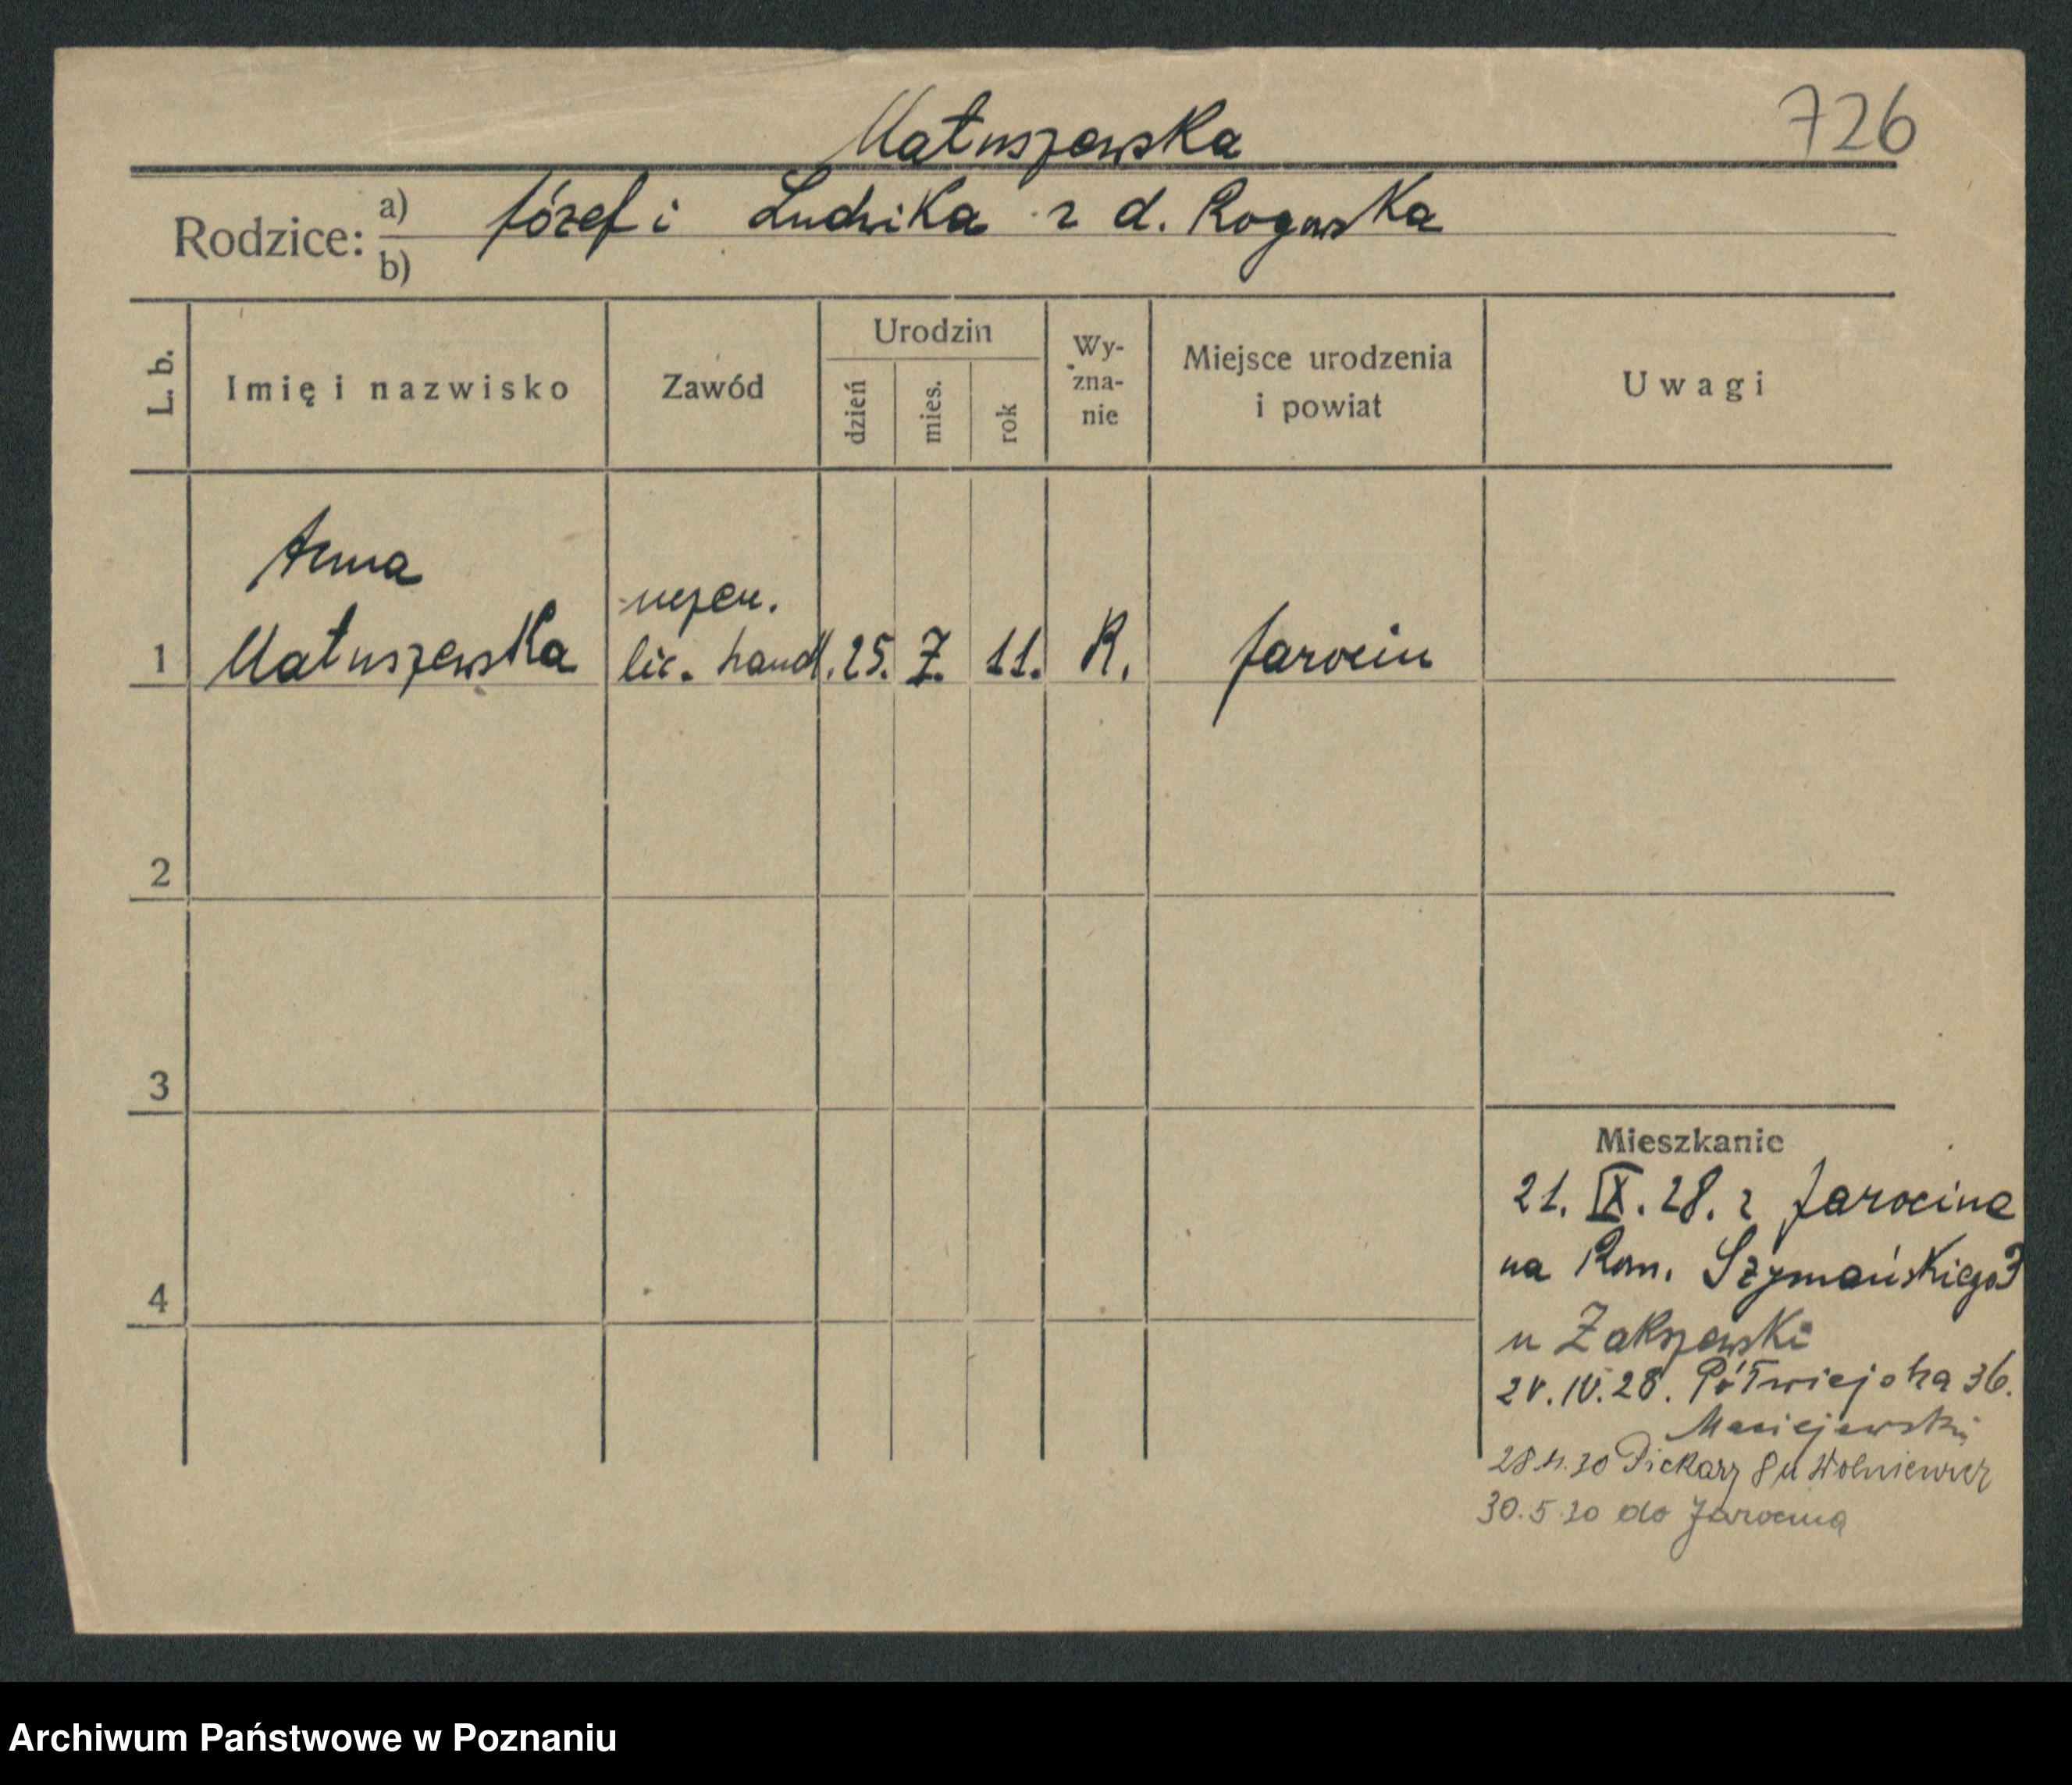 Matuszewska
726
Rodzice: a) Józef i Ludwika z d. Rogowska
b)
L. b.
Imię i nazwisko
Zawód
Urodzin
dzień
mies.
rok
Wy-
zna-
nie
Miejsce urodzenia
i powiat
Uwagi
Anna
uczen.
1 Matuszewska lic. handl. 25. 7. 11. R. Jarocin
2
3
4
Mieszkanie
21. IX. 28. z Jarocina
na Rom. Szymańskiego 3
u Zakszewski
IV. 28. Półwiejska 36.
Maciejewski
30 Piekary 8 u Wolniewicz
30.5.30 do Jarocina
Archiwum Państwowe w Poznaniu